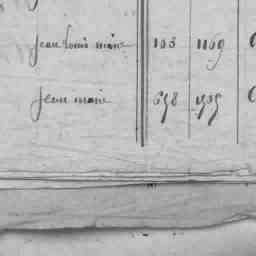 jean louis marie 103 1169
jean marie 658